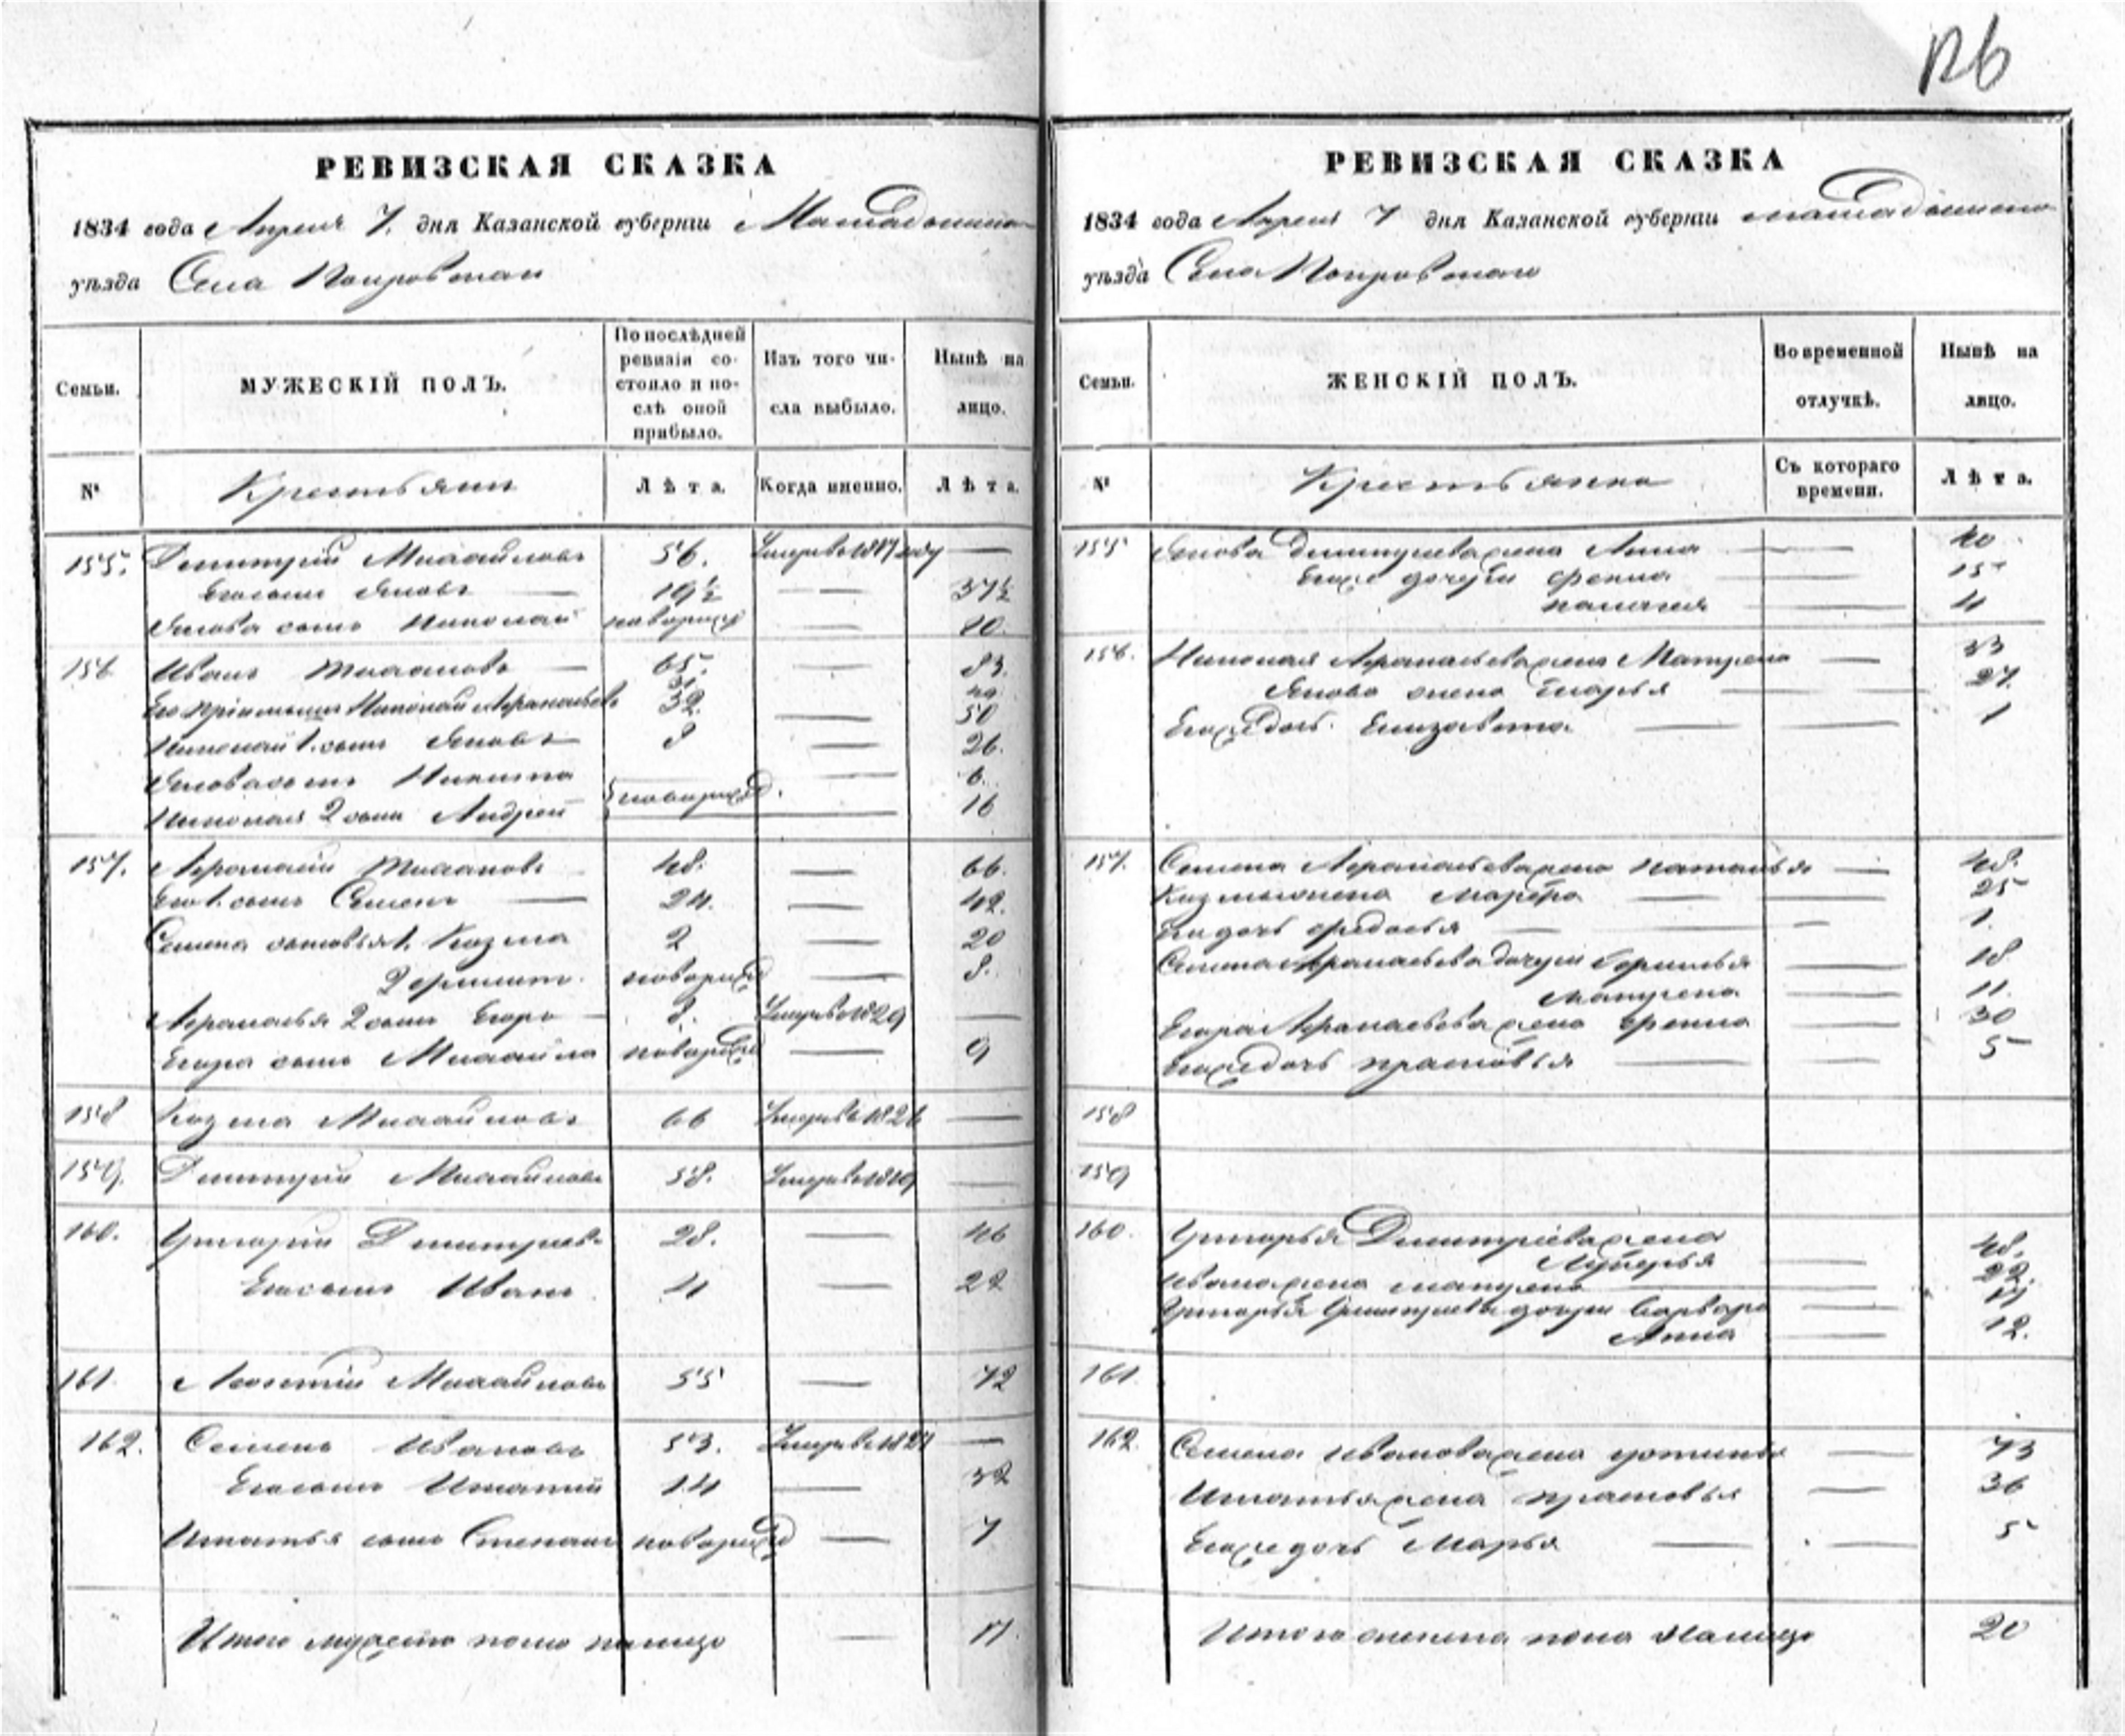 126
РЕВИЗСКАЯ СКАЗКА
1834 года Апреля 7. дня Казанской губернiи Мамадышского
уѣзда Села Покровскаго
Семьи.
МУЖЕСКIЙ ПОЛЪ.
По послѣдней ревизiи состояло и послѣ оной прибыло.
Изъ того числа выбыло.
Нынѣ на лицо.
№
Крестьяни
Лѣта.
Когда именно.
Лѣта.
155. Димитрий Михайловъ 56. Умеръ в 1817 году —
Его сынъ Яковъ — 19½ — 37½
Якова сынъ Николай новорожд — 10.
156 Иванъ Степановъ — 65. — 83.
Его прiемышъ Николай Афанасьевъ 32. — 50
Николай 1. сынъ Яковъ — 8 — 26.
Якова сынъ Никита — 6.
новорожд.
Николая 2 сынъ Андрей — 16
157. Афанасiй Степановъ 48. — 66.
Его 1. сынъ Семенъ — 24. — 42.
Семена сыновья 1. Козма 2 — 20
2 новорожд — 8.
Афанасья 2 сынъ Егоръ — 8. Умеръ в 1829 —
Егора сынъ Михайла новорожд — 9
158 Козма Михайловъ 66 Умеръ в 1826 —
159. Димитрий Михайловъ 58. Умеръ в 1819 —
160. Григорий Димитриевъ 28. — 46
Его сынъ Иванъ 4 — 22
161 Михайловъ 55 — 72
162. Семенъ Ивановъ 53. Умеръ в 1827 —
Его сынъ Игнатий 14 — 32
Игнатья сынъ Степанъ новорожд — 7
Итого мужеска пола налицо — 17.
РЕВИЗСКАЯ СКАЗКА
1834 года Апреля 7 дня Казанской губернiи мамадышскаго
уѣзда Села Покровскаго
Семьи.
ЖЕНСКIЙ ПОЛЪ.
Во временной отлучкѣ.
Нынѣ на лицо.
№
Крестьянка
Съ котораго времени.
Лѣта.
155 Якова Димитриева жена Анна — 40
Его же дочери — 15
пелагея — 4
156. Николая Афанасьева жена Матрена — 33
Якова жена Марья — 27.
Его же дочь Елизавета — 1
157. Семена Афанасьева жена Наталья — 48.
Козмы жена Марфа — 25
Его дочь федосья — 1.
Семена Афанасьева дочери — 18
Матрена — 11.
Егора Афанасьева жена — 30
Его же дочь прасковья — 5
158
159
160. Григорья Димитрiева жена
Лукерья — 48.
Ивана жена матрена — 22.
Григорья Димитриева дочери Варвара — 17
Анна — 12.
161.
162. Семена Иванова жена устинья — 73
Игнатья жена прасковья — 36
Его же дочь Марья — 5
Итого женска пола налицо 20